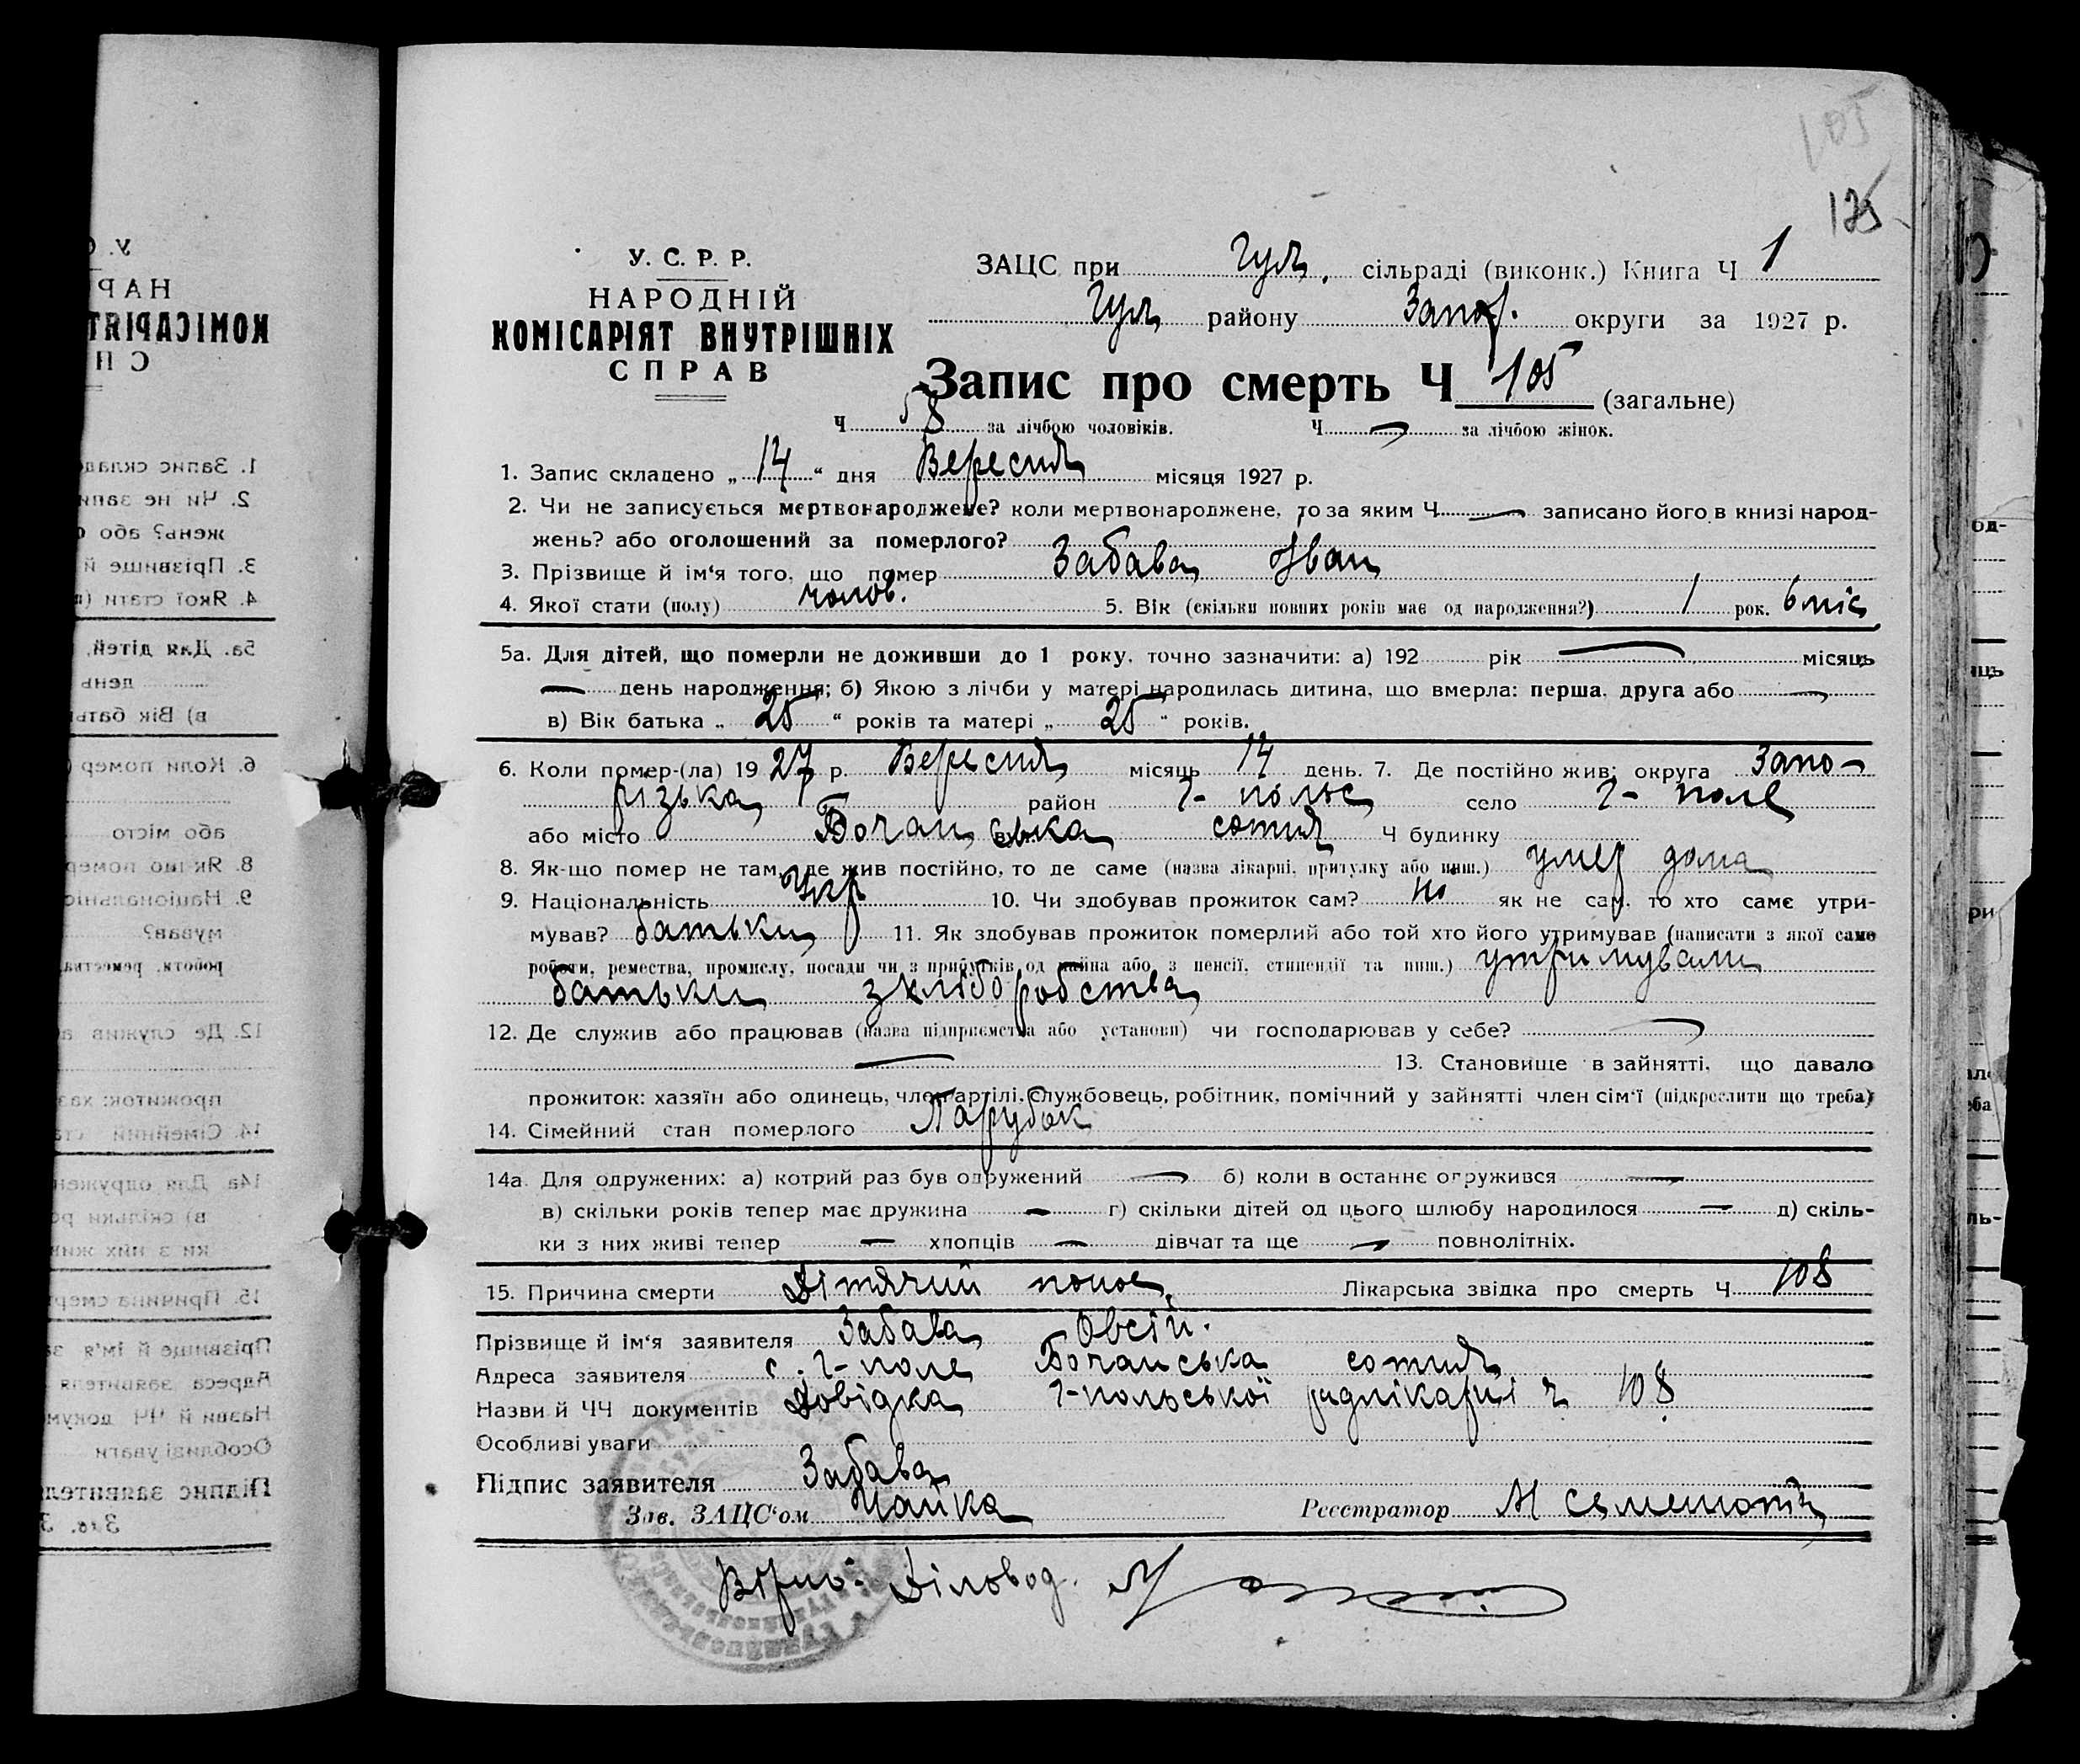 105
125
У. С. Р. Р.
НАРОДНІЙ
КОМІСАРІЯТ ВНУТРІШНІХ
СПРАВ
ЗАЦС при Гуля. сільраді (виконк.) Книга Ч 1
Гуля району Запор. округи за 1927 р.
Запис про смерть Ч 105 (загальне)
Ч 58 за лічбою чоловіків. Ч — за лічбою жінок.
1. Запис складено „ 14 “ дня Вересня місяця 1927 р.
2. Чи не записується мертвонароджене? коли мертвонароджене, то за яким Ч — записано його в книзі народ-
жень? або оголошений за померлого?
3. Прізвище й ім'я того, що помер Забава Іван
4. Якої стати (полу) чолов. 5. Вік (скільки повних років має од народження?) 1 рок. 6 міс
5а. Для дітей, що померли не доживши до 1 року, точно зазначити: а) 192 рік — місяць
— день народження; б) Якою з лічби у матері народилась дитина, що вмерла: перша, друга або —
в) Вік батька „ 25 “ років та матері „ 25 “ років.
6. Коли помер-(ла) 1927 р. Вересня місяць 14 день. 7. Де постійно жив: округа Запо-
різька район Г- польс село Г- поле
або місто Бочанська сотня Ч будинку
8. Як-що помер не там, де жив постійно, то де саме (назва лікарні, притулку або инш.) умер дома
9. Національність Укр 10. Чи здобував прожиток сам? ні як не сам, то хто саме утри-
мував? батьки 11. Як здобував прожиток померлий або той хто його утримував (написати з якої саме
роботи, ремества, промислу, посади чи з прибутків од майна або з пенсії, стипендії та инш.) утримували
батьки з хліборобства
12. Де служив або працював (назва підприємства або установи) чи господарював у себе? —
— 13. Становище в зайнятті, що давало
прожиток: хазяїн або одинець, член артілі, службовець, робітник, помічний у зайнятті член сім'ї (підкреслити що треба)
14. Сімейний стан померлого Парубок
14а. Для одружених: а) котрий раз був одружений — б) коли в останнє одружився —
в) скільки років тепер має дружина — г) скільки дітей од цього шлюбу народилося — д) скіль-
ки з них живі тепер — хлопців — дівчат та ще — повнолітніх.
15. Причина смерти Дітячий понос, Лікарська звідка про смерть Ч 108
Прізвище й ім'я заявителя Забава Овсій.
Адреса заявителя с. Г-поле Бочанська сотня
Назви й ЧЧ документів Довідка Г-польської радлікарні ч 108
Особливі уваги
Підпис заявителя Забава
Зав. ЗАЦС'ом Чайка Реєстратор М
Вірно: Діловод.